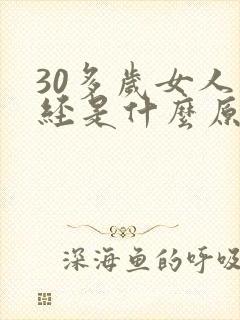 30多歲女人
經是什麼原
深海鱼的呼吸